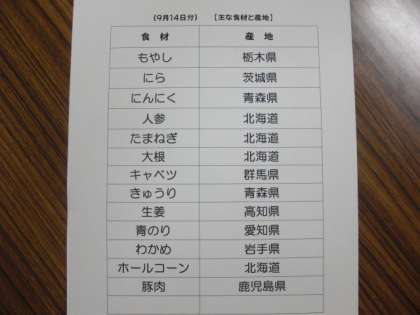 (9月14日分) 【主な食材と産地】
食材 産地
もやし 栃木県
にら 茨城県
にんにく 青森県
人参 北海道
たまねぎ 北海道
大根 北海道
キャベツ 群馬県
きゅうり 青森県
生姜 高知県
青のり 愛知県
わかめ 岩手県
ホールコーン 北海道
豚肉 鹿児島県